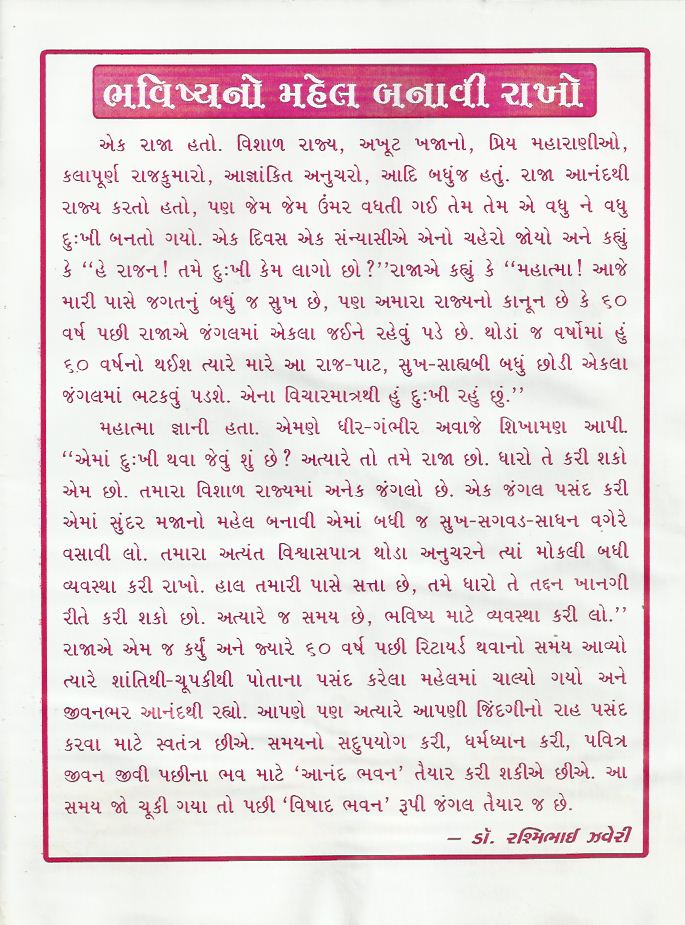 ભવિષ્યનો મહેલ બનાવી રાખો
એક રાજા હતો. વિશાળ રાજ્ય, અખૂટ ખજાનો, પ્રિય મહારાણીઓ,
કલાપૂર્ણ રાજકુમારો, આજ્ઞાંકિત અનુચરો, આદિ બધુંજ હતું. રાજા આનંદથી
રાજ્ય કરતો હતો, પણ જેમ જેમ ઉંમર વધતી ગઈ તેમ તેમ એ વધુ ને વધુ
દુઃખી બનતો ગયો. એક દિવસ એક સંન્યાસીએ એનો ચહેરો જોયો અને કહ્યું
કે ‘‘હે રાજન! તમે દુઃખી કેમ લાગો છો?’’રાજાએ કહ્યું કે ‘‘મહાત્મા! આજે
મારી પાસે જગતનું બધું જ સુખ છે, પણ અમારા રાજ્યનો કાનૂન છે કે ૬૦
વર્ષ પછી રાજાએ જંગલમાં એકલા જઈને રહેવું પડે છે. થોડાં જ વર્ષોમાં હું
૬૦ વર્ષનો થઈશ ત્યારે મારે આ રાજ-પાટ, સુખ-સાહ્યબી બધું છોડી એકલા
જંગલમાં ભટકવું પડશે. એના વિચારમાત્રથી હું દુઃખી રહું છું.’’
મહાત્મા જ્ઞાની હતા. એમણે ધીર-ગંભીર અવાજે શિખામણ આપી.
‘‘એમાં દુઃખી થવા જેવું શું છે? અત્યારે તો તમે રાજા છો. ધારો તે કરી શકો
એમ છો. તમારા વિશાળ રાજ્યમાં અનેક જંગલો છે. એક જંગલ પસંદ કરી
એમાં સુંદર મજાનો મહેલ બનાવી એમાં બધી જ સુખ-સગવડ-સાધન વગેરે
વસાવી લો. તમારા અત્યંત વિશ્વાસપાત્ર થોડા અનુચરને ત્યાં મોકલી બધી
વ્યવસ્થા કરી રાખો. હાલ તમારી પાસે સત્તા છે, તમે ધારો તે તદ્દન ખાનગી
રીતે કરી શકો છો. અત્યારે જ સમય છે, ભવિષ્ય માટે વ્યવસ્થા કરી લો.’’
રાજાએ એમ જ કર્યું અને જ્યારે ૬૦ વર્ષ પછી રિટાયર્ડ થવાનો સમય આવ્યો
ત્યારે શાંતિથી-ચૂપકીથી પોતાના પસંદ કરેલા મહેલમાં ચાલ્યો ગયો અને
જીવનભર આનંદથી રહ્યો. આપણે પણ અત્યારે આપણી જિંદગીનો રાહ પસંદ
કરવા માટે સ્વતંત્ર છીએ. સમયનો સદુપયોગ કરી, ધર્મધ્યાન કરી, પવિત્ર
જીવન જીવી પછીના ભવ માટે ‘આનંદ ભવન’ તૈયાર કરી શકીએ છીએ. આ
સમય જો ચૂકી ગયા તો પછી ‘વિષાદ ભવન’ રૂપી જંગલ તૈયાર જ છે.
– ડૉ. રશ્મિભાઈ ઝવેરી